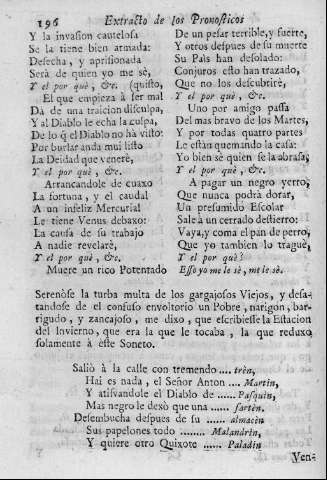 196 Extracto de los Pronosticos
Y la invasion cautelosa
Se la tiene bien armada:
Desecha, y aprisionada
Serà de quien yo me sè,
Y el por què, &c. (quisto,
El que empieza à ser mal
Dà de una traicion disculpa,
Y al Diablo le echa la culpa,
De lo q̃ el Diablo no hà visto:
Por burlar anda mui listo
La Deidad que venerè,
Y el por què, &c.
Arrancandole de cuaxo
La fortuna, y el caudal
A un infeliz Mercurial
Le tiene Venus debaxo:
La causa de su trabajo
A nadie revelarè,
Y el por què, &c.
Muere un rico Potentado
De un pesar terrible, y fuerte,
Y otros despues de su muerte
Su Païs han desolado:
Conjuros esto han trazado,
Que no los descubrirè,
Y el por què, &c.
Uno por amigo passa
Del mas bravo de los Martes,
Y por todas quatro partes
Le estàn quemando la casa:
Yo bien sè quien se la abrasa,
Y el por què, &c.
A pagar un negro yerro,
Que nunca podrà dorar,
Un presumido Escolar
Sale à un cerrado destierro:
Vaya, y coma el pan de perro,
Que yo tambien lo traguè,
Y el por què?
Esso yo me le sè, me le sè.
Serenòse la turba multa de los gargajosos Viejos, y desa-
tandose de el confuso envoltorio un Pobre, narigon, bar-
rigudo, y zancajoso, me dixo, que escribiesse la Estacion
del Invierno, que era la que le tocaba, la que reduxo
solamente à este Soneto.
Saliò à la calle con tremendo .... trèn,
Hai es nada, el Señor Anton .... Martin,
Y atisvandole el Diablo de ...... Pasquin,
Mas negro le dexò que una ...... sartèn.
Desembucha despues de su ...... almacèn
Sus papelones todo ........ Malandrin,
Y quiere otro Quixote ...... Paladin
Ven-